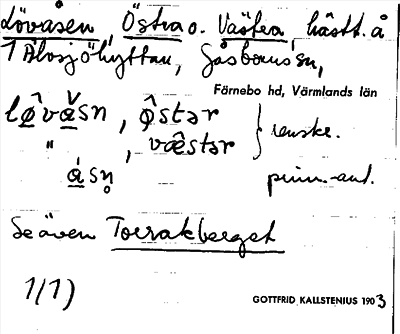 Lövåsen, Östra o. Västra, hästt. å
1 Älvsjöhyttan, Gåsborns sn,
Färnebo hd, Värmlands län
lø̂våsn, ø̂stər
" , væstər } enske.
åsn̥ prim.-ant.
Se även Torrakberget
1/1)
GOTTFRID KALLSTENIUS 1903